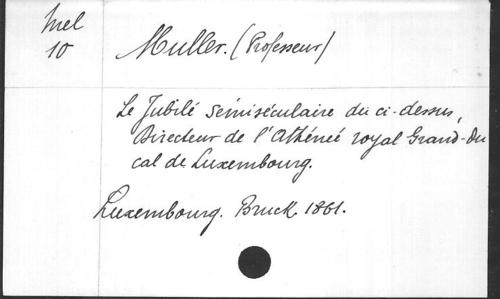 Mel
10
Muller. (Professeur)
Le Jubilé Semiséculaire du ci-dessus,
Directeur de l'Athéneé royal Grand-Du
cal de Luxembourg.
Luxembourg. Bruck 1861.